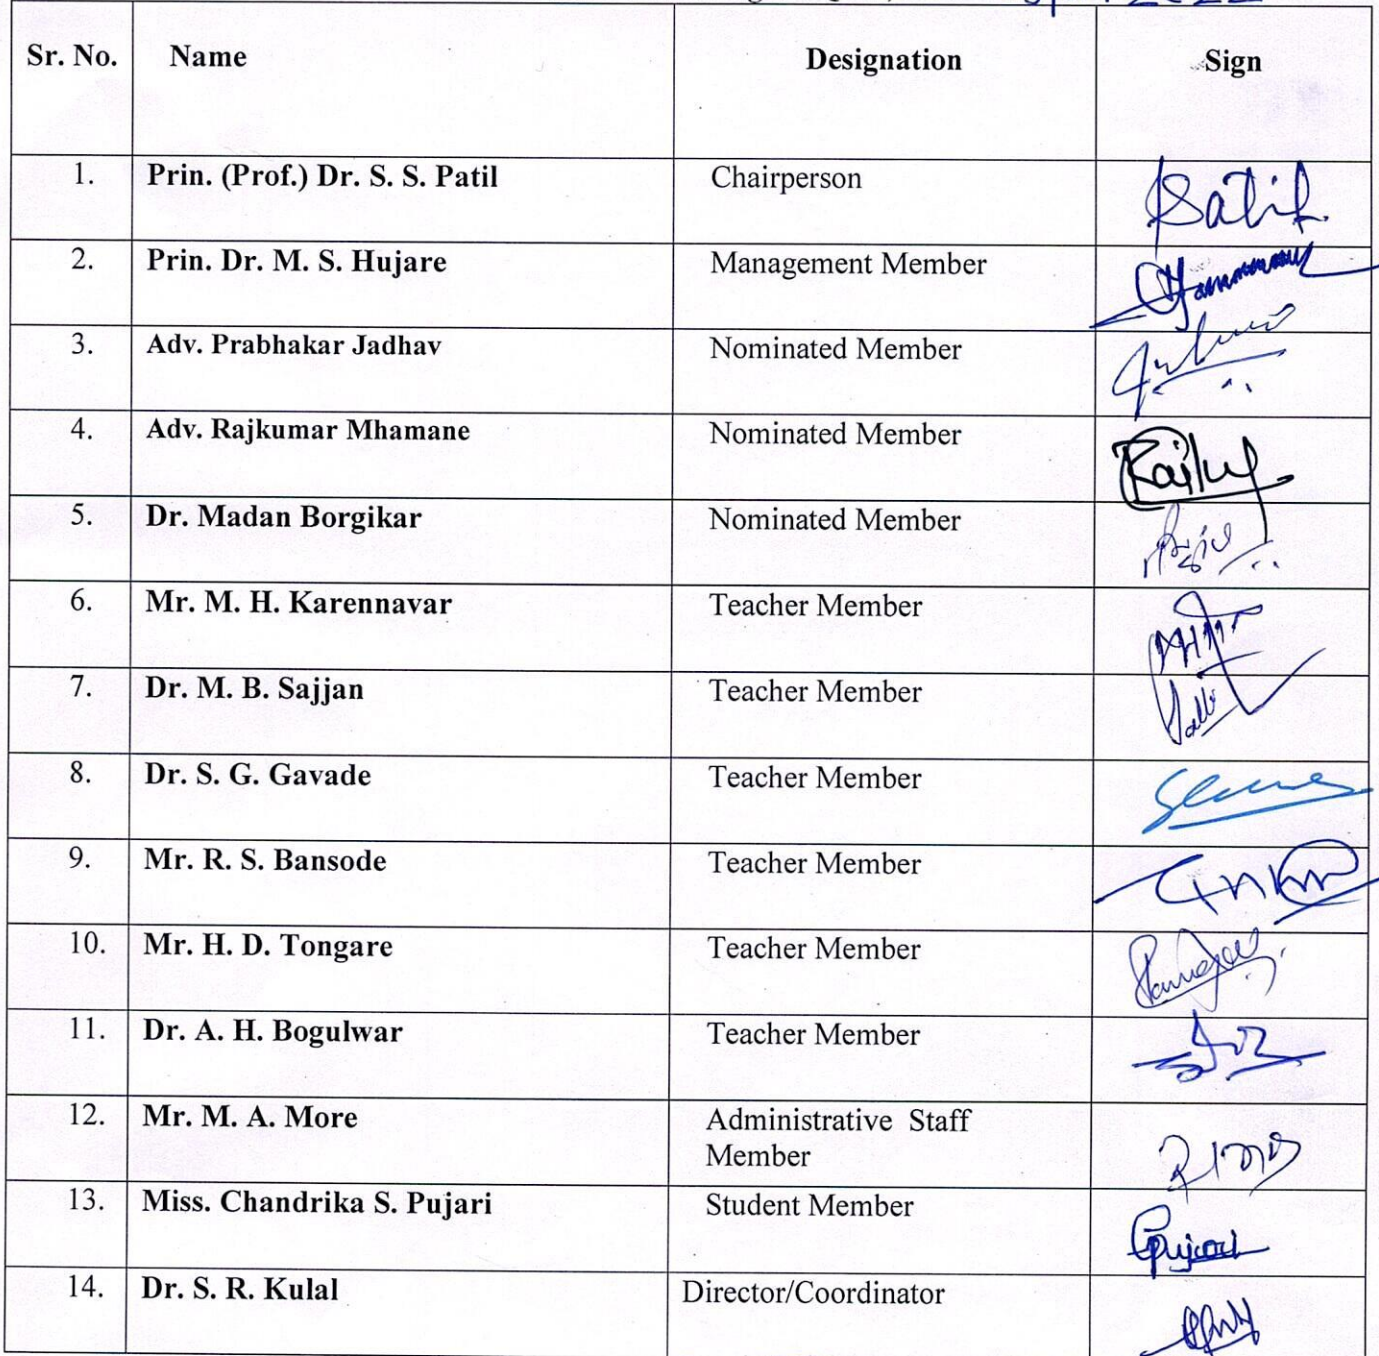 2022
Sr. No. Name Designation Sign
1. Prin. (Prof.) Dr. S. S. Patil Chairperson
2. Prin. Dr. M. S. Hujare Management Member
3. Adv. Prabhakar Jadhav Nominated Member
4. Adv. Rajkumar Mhamane Nominated Member
5. Dr. Madan Borgikar Nominated Member
6. Mr. M. H. Karennavar Teacher Member
7. Dr. M. B. Sajjan Teacher Member
8. Dr. S. G. Gavade Teacher Member
9. Mr. R. S. Bansode Teacher Member
10. Mr. H. D. Tongare Teacher Member
11. Dr. A. H. Bogulwar Teacher Member
12. Mr. M. A. More Administrative Staff
Member
13. Miss. Chandrika S. Pujari Student Member
Pujari
14. Dr. S. R. Kulal Director/Coordinator